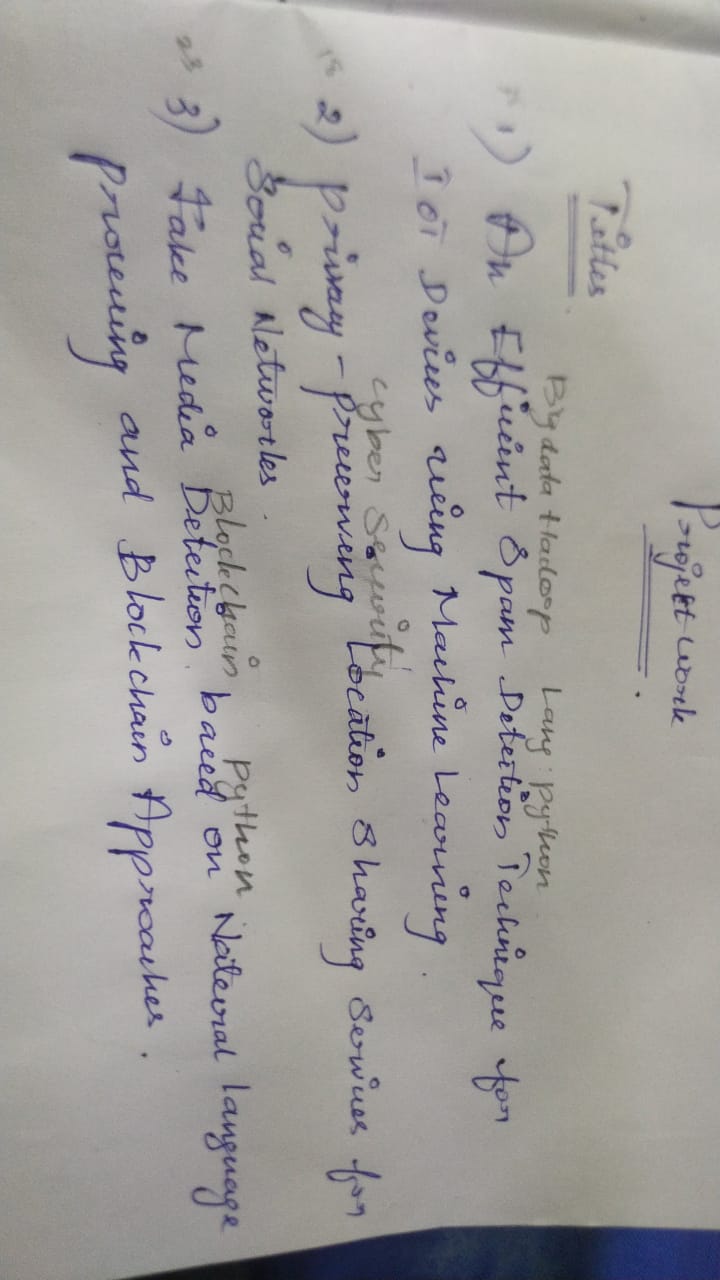 Project work
Titles
Bigdata Hadoop Lang: python
1) An Efficient Spam Detection Technique for
IoT Devices using Machine Learning.
Cyber Security
2) privacy-preserving Location Sharing Services for
Social Networks.
Blockchain python
3) Fake Media Detection based on Natural language
processing and Blockchain Approaches.